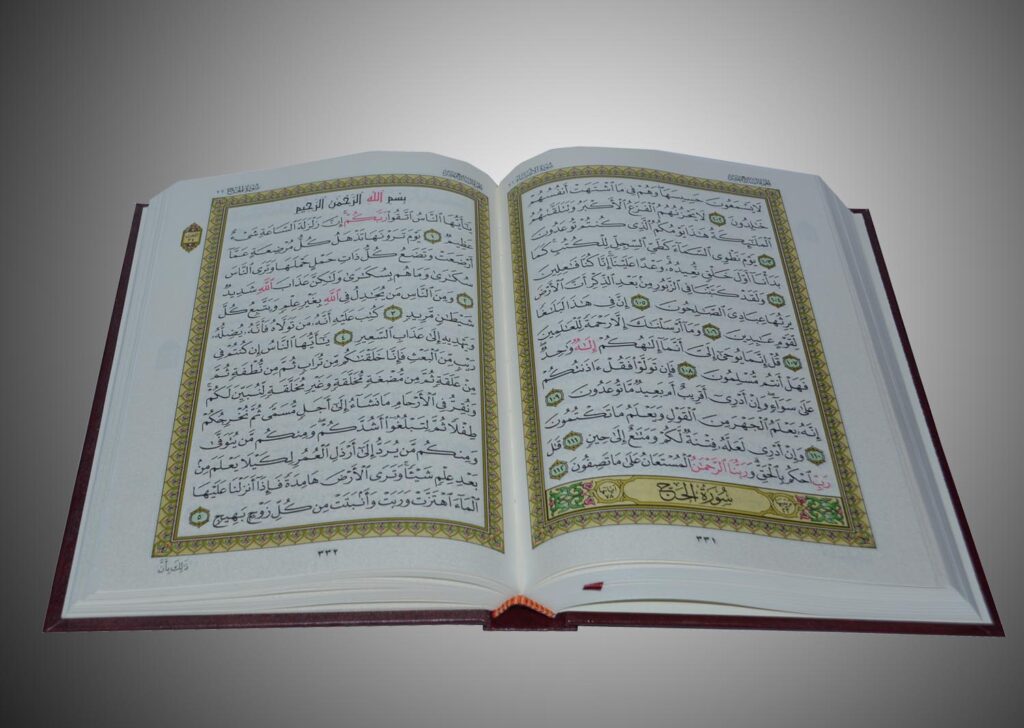 سُورَةُ الأَنبِيَاءِ ٢١
الجُزْءُ السَّابِعَ عَشَرَ
لَا يَسْمَعُونَ حَسِيسَهَا وَهُمْ فِي مَا ٱشْتَهَتْ أَنفُسُهُمْ
خَٰلِدُونَ ١٠٢ لَا يَحْزُنُهُمُ ٱلْفَزَعُ ٱلْأَكْبَرُ وَتَتَلَقَّىٰهُمُ
ٱلْمَلَٰٓئِكَةُ هَٰذَا يَوْمُكُمُ ٱلَّذِي كُنتُمْ تُوعَدُونَ ١٠٣
يَوْمَ نَطْوِي ٱلسَّمَآءَ كَطَيِّ ٱلسِّجِلِّ لِلْكُتُبِ كَمَا
بَدَأْنَآ أَوَّلَ خَلْقٍ نُّعِيدُهُۥ وَعْدًا عَلَيْنَآ إِنَّا كُنَّا فَٰعِلِينَ
١٠٤ وَلَقَدْ كَتَبْنَا فِي ٱلزَّبُورِ مِنۢ بَعْدِ ٱلذِّكْرِ أَنَّ ٱلْأَرْضَ
يَرِثُهَا عِبَادِيَ ٱلصَّٰلِحُونَ ١٠٥ إِنَّ فِي هَٰذَا لَبَلَٰغًا
لِّقَوْمٍ عَٰبِدِينَ ١٠٦ وَمَآ أَرْسَلْنَٰكَ إِلَّا رَحْمَةً لِّلْعَٰلَمِينَ
١٠٧ قُلْ إِنَّمَا يُوحَىٰٓ إِلَيَّ أَنَّمَآ إِلَٰهُكُمْ إِلَٰهٌ وَٰحِدٌ
فَهَلْ أَنتُم مُّسْلِمُونَ ١٠٨ فَإِن تَوَلَّوْا۟ فَقُلْ ءَاذَنتُكُمْ
عَلَىٰ سَوَآءٍ وَإِنْ أَدْرِىٓ أَقَرِيبٌ أَم بَعِيدٌ مَّا تُوعَدُونَ ١٠٩
إِنَّهُۥ يَعْلَمُ ٱلْجَهْرَ مِنَ ٱلْقَوْلِ وَيَعْلَمُ مَا تَكْتُمُونَ
١١٠ وَإِنْ أَدْرِي لَعَلَّهُۥ فِتْنَةٌ لَّكُمْ وَمَتَٰعٌ إِلَىٰ حِينٍ ١١١ قَٰلَ
رَبِّ ٱحْكُم بِٱلْحَقِّ وَرَبُّنَا ٱلرَّحْمَٰنُ ٱلْمُسْتَعَانُ عَلَىٰ مَا تَصِفُونَ ١١٢
سُورَةُ الحَجِّ
٣٣١
سُورَةُ الحَجِّ ٢٢
الجُزْءُ السَّابِعَ عَشَرَ
بِسْمِ ٱللَّهِ ٱلرَّحْمَٰنِ ٱلرَّحِيمِ
يَٰٓأَيُّهَا ٱلنَّاسُ ٱتَّقُوا۟ رَبَّكُمْ إِنَّ زَلْزَلَةَ ٱلسَّاعَةِ شَيْءٌ
عَظِيمٌ ١ يَوْمَ تَرَوْنَهَا تَذْهَلُ كُلُّ مُرْضِعَةٍ عَمَّآ
أَرْضَعَتْ وَتَضَعُ كُلُّ ذَاتِ حَمْلٍ حَمْلَهَا وَتَرَى ٱلنَّاسَ
سُكَٰرَىٰ وَمَا هُم بِسُكَٰرَىٰ وَلَٰكِنَّ عَذَابَ ٱللَّهِ شَدِيدٌ
٢ وَمِنَ ٱلنَّاسِ مَن يُجَٰدِلُ فِي ٱللَّهِ بِغَيْرِ عِلْمٍ وَيَتَّبِعُ كُلَّ
شَيْطَٰنٍ مَّرِيدٍ ٣ كُتِبَ عَلَيْهِ أَنَّهُۥ مَن تَوَلَّاهُ فَأَنَّهُۥ يُضِلُّهُۥ
وَيَهْدِيهِ إِلَىٰ عَذَابِ ٱلسَّعِيرِ ٤ يَٰٓأَيُّهَا ٱلنَّاسُ إِن كُنتُمْ فِي
رَيْبٍ مِّنَ ٱلْبَعْثِ فَإِنَّا خَلَقْنَٰكُم مِّن تُرَابٍ ثُمَّ مِن نُّطْفَةٍ ثُمَّ
مِنْ عَلَقَةٍ ثُمَّ مِن مُّضْغَةٍ مُّخَلَّقَةٍ وَغَيْرِ مُخَلَّقَةٍ لِّنُبَيِّنَ لَكُمْ
وَنُقِرُّ فِي ٱلْأَرْحَامِ مَا نَشَآءُ إِلَىٰٓ أَجَلٍ مُّسَمًّى ثُمَّ نُخْرِجُكُمْ
طِفْلًا ثُمَّ لِتَبْلُغُوٓا۟ أَشُدَّكُمْ وَمِنكُم مَّن يُتَوَفَّىٰ
وَمِنكُم مَّن يُرَدُّ إِلَىٰٓ أَرْذَلِ ٱلْعُمُرِ لِكَيْلَا يَعْلَمَ مِنۢ
بَعْدِ عِلْمٍ شَيْـًٔا وَتَرَى ٱلْأَرْضَ هَامِدَةً فَإِذَآ أَنزَلْنَا عَلَيْهَا
ٱلْمَآءَ ٱهْتَزَّتْ وَرَبَتْ وَأَنۢبَتَتْ مِن كُلِّ زَوْجٍۭ بَهِيجٍ ٥
٣٣٢
ذَٰلِكَ بِأَنَّ